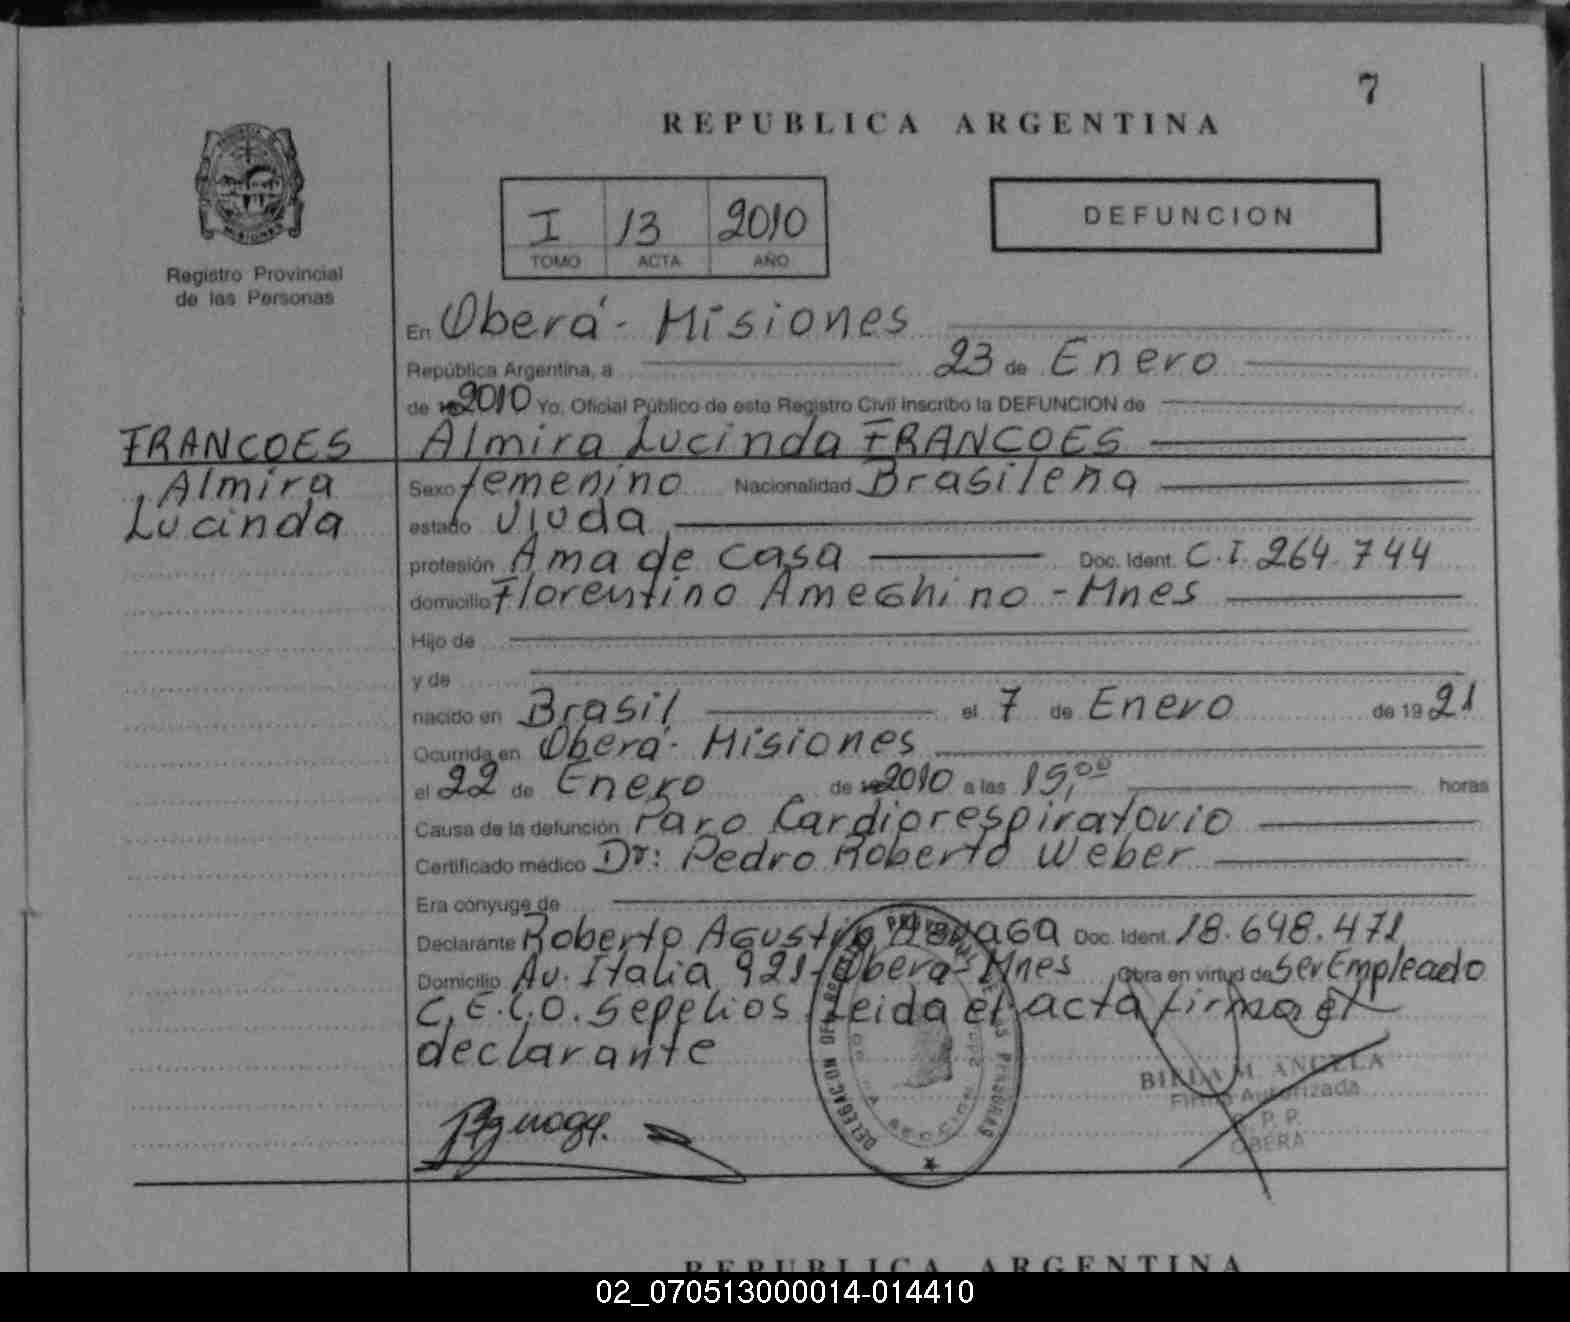 7
REPUBLICA ARGENTINA
MISIONES
Registro Provincial
de las Personas
I 13 2010
TOMO ACTA AÑO
DEFUNCION
En Oberá - Misiones
República Argentina, a 23 de Enero
de 2010 Yo, Oficial Público de este Registro Civil inscribo la DEFUNCION de
FRANCOES Almira Lucinda FRANCOES
Almira
Lucinda
Sexo femenino Nacionalidad Brasileña
estado viuda
profesión Ama de casa Doc. Ident. C.I. 264.744
domicilio Florentino Ameghino - Mnes
Hijo de
y de
nacido en Brasil el 7 de Enero de 19 21
Ocurrida en Oberá - Misiones
el 22 de Enero de 2010 a las 15,00 horas
Causa de la defunción Paro Cardiorespiratorio
Certificado médico Dr: Pedro Roberto Weber
Era conyuge de
Declarante Roberto Agustin Doc. Ident. 18.648.471
Domicilio Av. Italia 921 - Oberá - Mnes Obra en virtud de Ser Empleado
C.E.L.O. Sepelios. Leida el acta firma el
declarante
DELEGACION
PERSONAS
SECCION
M. ANGELA
Firma Autorizada
R. P. P.
OBERA
REPUBLICA ARGENTINA
02_070513000014-014410